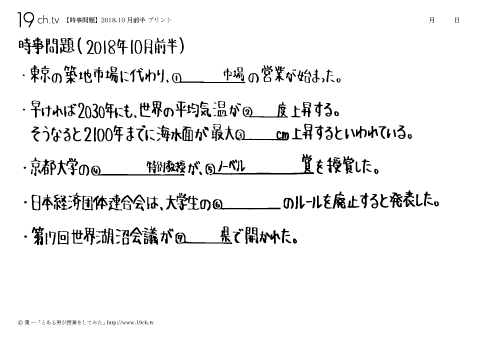 19 ch.tv 【時事問題】2018.10月前半 プリント 月 日
時事問題(2018年10月前半)
・東京の築地市場に代わり、①＿＿＿市場の営業が始まった。
・早ければ2030年にも、世界の平均気温が②＿＿＿度上昇する。
そうなると2100年までに海水面が最大③＿＿＿cm上昇するといわれている。
・京都大学の④＿＿＿特別教授が、⑤ノーベル＿＿＿賞を授賞した。
・日本経済団体連合会は、大学生の⑥＿＿＿のルールを廃止すると発表した。
・第17回世界湖沼会議が⑦＿＿＿県で開かれた。
© 葉一「とある男が授業をしてみた」http://www.19ch.tv